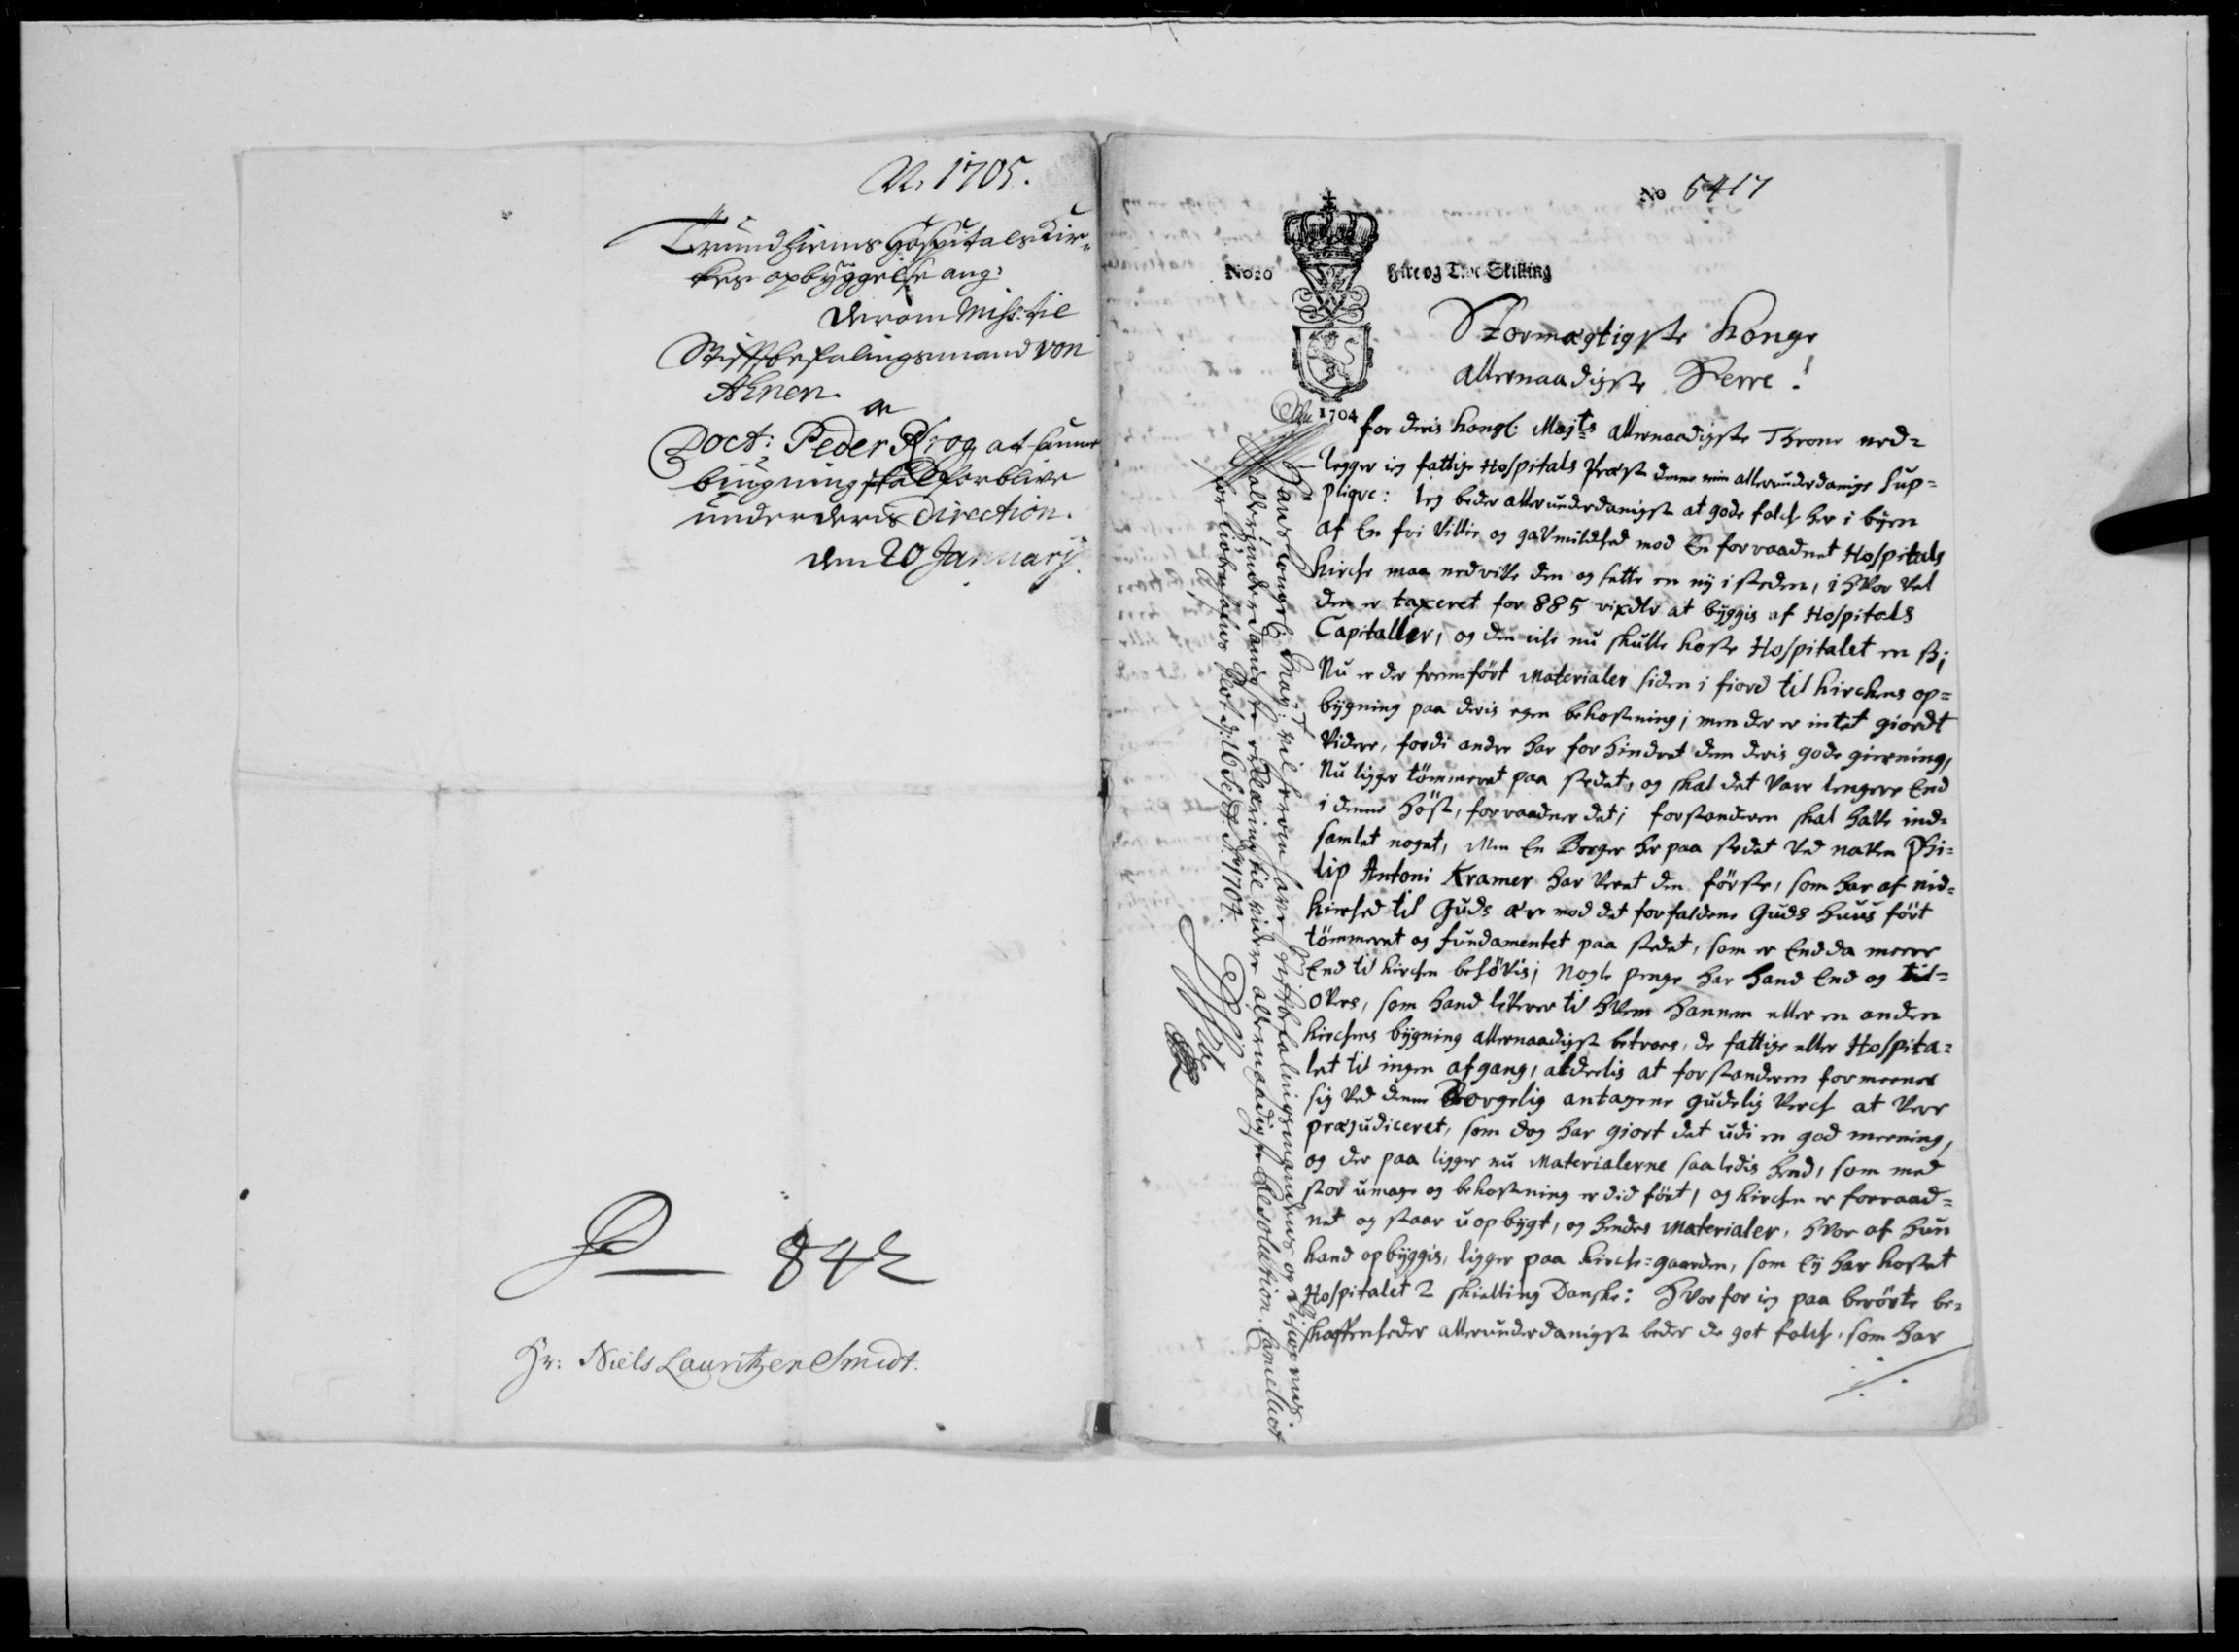 N. 1705.
Trundhiems Hospitals Kir-
kes opbyggelse ang:
derom Miss: til
Stiftbefalingsmand von
Ahnen
og
Doct: Peder Krog at samme
bÿgning skal forblive
under deris Direction.
den 20 Januarÿ.
P 842
Hr: Niels Lauritzen Smidt.
No 5417
No 20 Fire og Tive Skilling
Stormægtigste Konge
Allernaadigste Herre!
1704
for deris Kongl: Majts Allernaadigste Throne ned=
legger ieg fattige Hospitals Præst denne min allerunderdanige Sup=
pliqve: Ieg beder allerunderdanigst at gode folch her i byen
af En fri Villie og gavmildhed mod En forraadnet Hospitals
Kirche maa nedrive den og sette en nÿ i steden, i hvor vel
den er taxeret for 885 rixdlr at byggis af Hospitals
Capitaller, og den icke nu skulle koste Hospitalet en ß;
Nu er der fremfört Materialer siden i fiord til Kirchens op=
bÿgning paa deris egen bekostning; men der er intet giordt
Videre, fordi andre har forhindret dem deris gode gierning,
Nu ligger tömmeret paa stedet, og skal det Vare lengere End
i denne Höst, forraadner det; forstanderen skal have ind=
samlet noget, Men En Borger her paa stedet Ved naven Phi=
lip Antoni Kramer har Veret den förste, som har af nid=
kierhed til Guds ære mod det forfaldene Guds Huus fört
tömmeret og fundamentet paa stedet, som er Endda mere
End til Kirchen behövis; Nogle penge har hand End og til=
overs, som hand leverer til hvem hannem eller en anden
Kirchens bÿgning allernaadigst betroes, de fattige eller Hospita=
let til ingen afgang, aldeelis at forstanderen formeener
sig Ved denne Borgelig antagene Gudelig Verch at Vere
præjudiceret, som dog har giort det udi en god meening,
og der paa ligger nu Materialerne saaledis hend, som med
stor umage og bekostning er did fört, og Kirchen er forraad=
net og staar uopbÿgt, og hendes Materialer, hvor af hun
kand opbÿggis, ligger paa Kirche=gaarden, som Eÿ har kostet
Hospitalet 2 skielling Danske: Hvorfor ieg paa berörte be=
skaffenheder allerunderdanigst beder de got folch, som har
Hans Kongl: May:t vil herom have Stiftbefalingsmandens og Bispens
allerunderdanigste erklæring til videre allernaadigste Resolution. Cancelliet
for Kiöbenhafns Slot d: 16 Sept. Ao 1704.